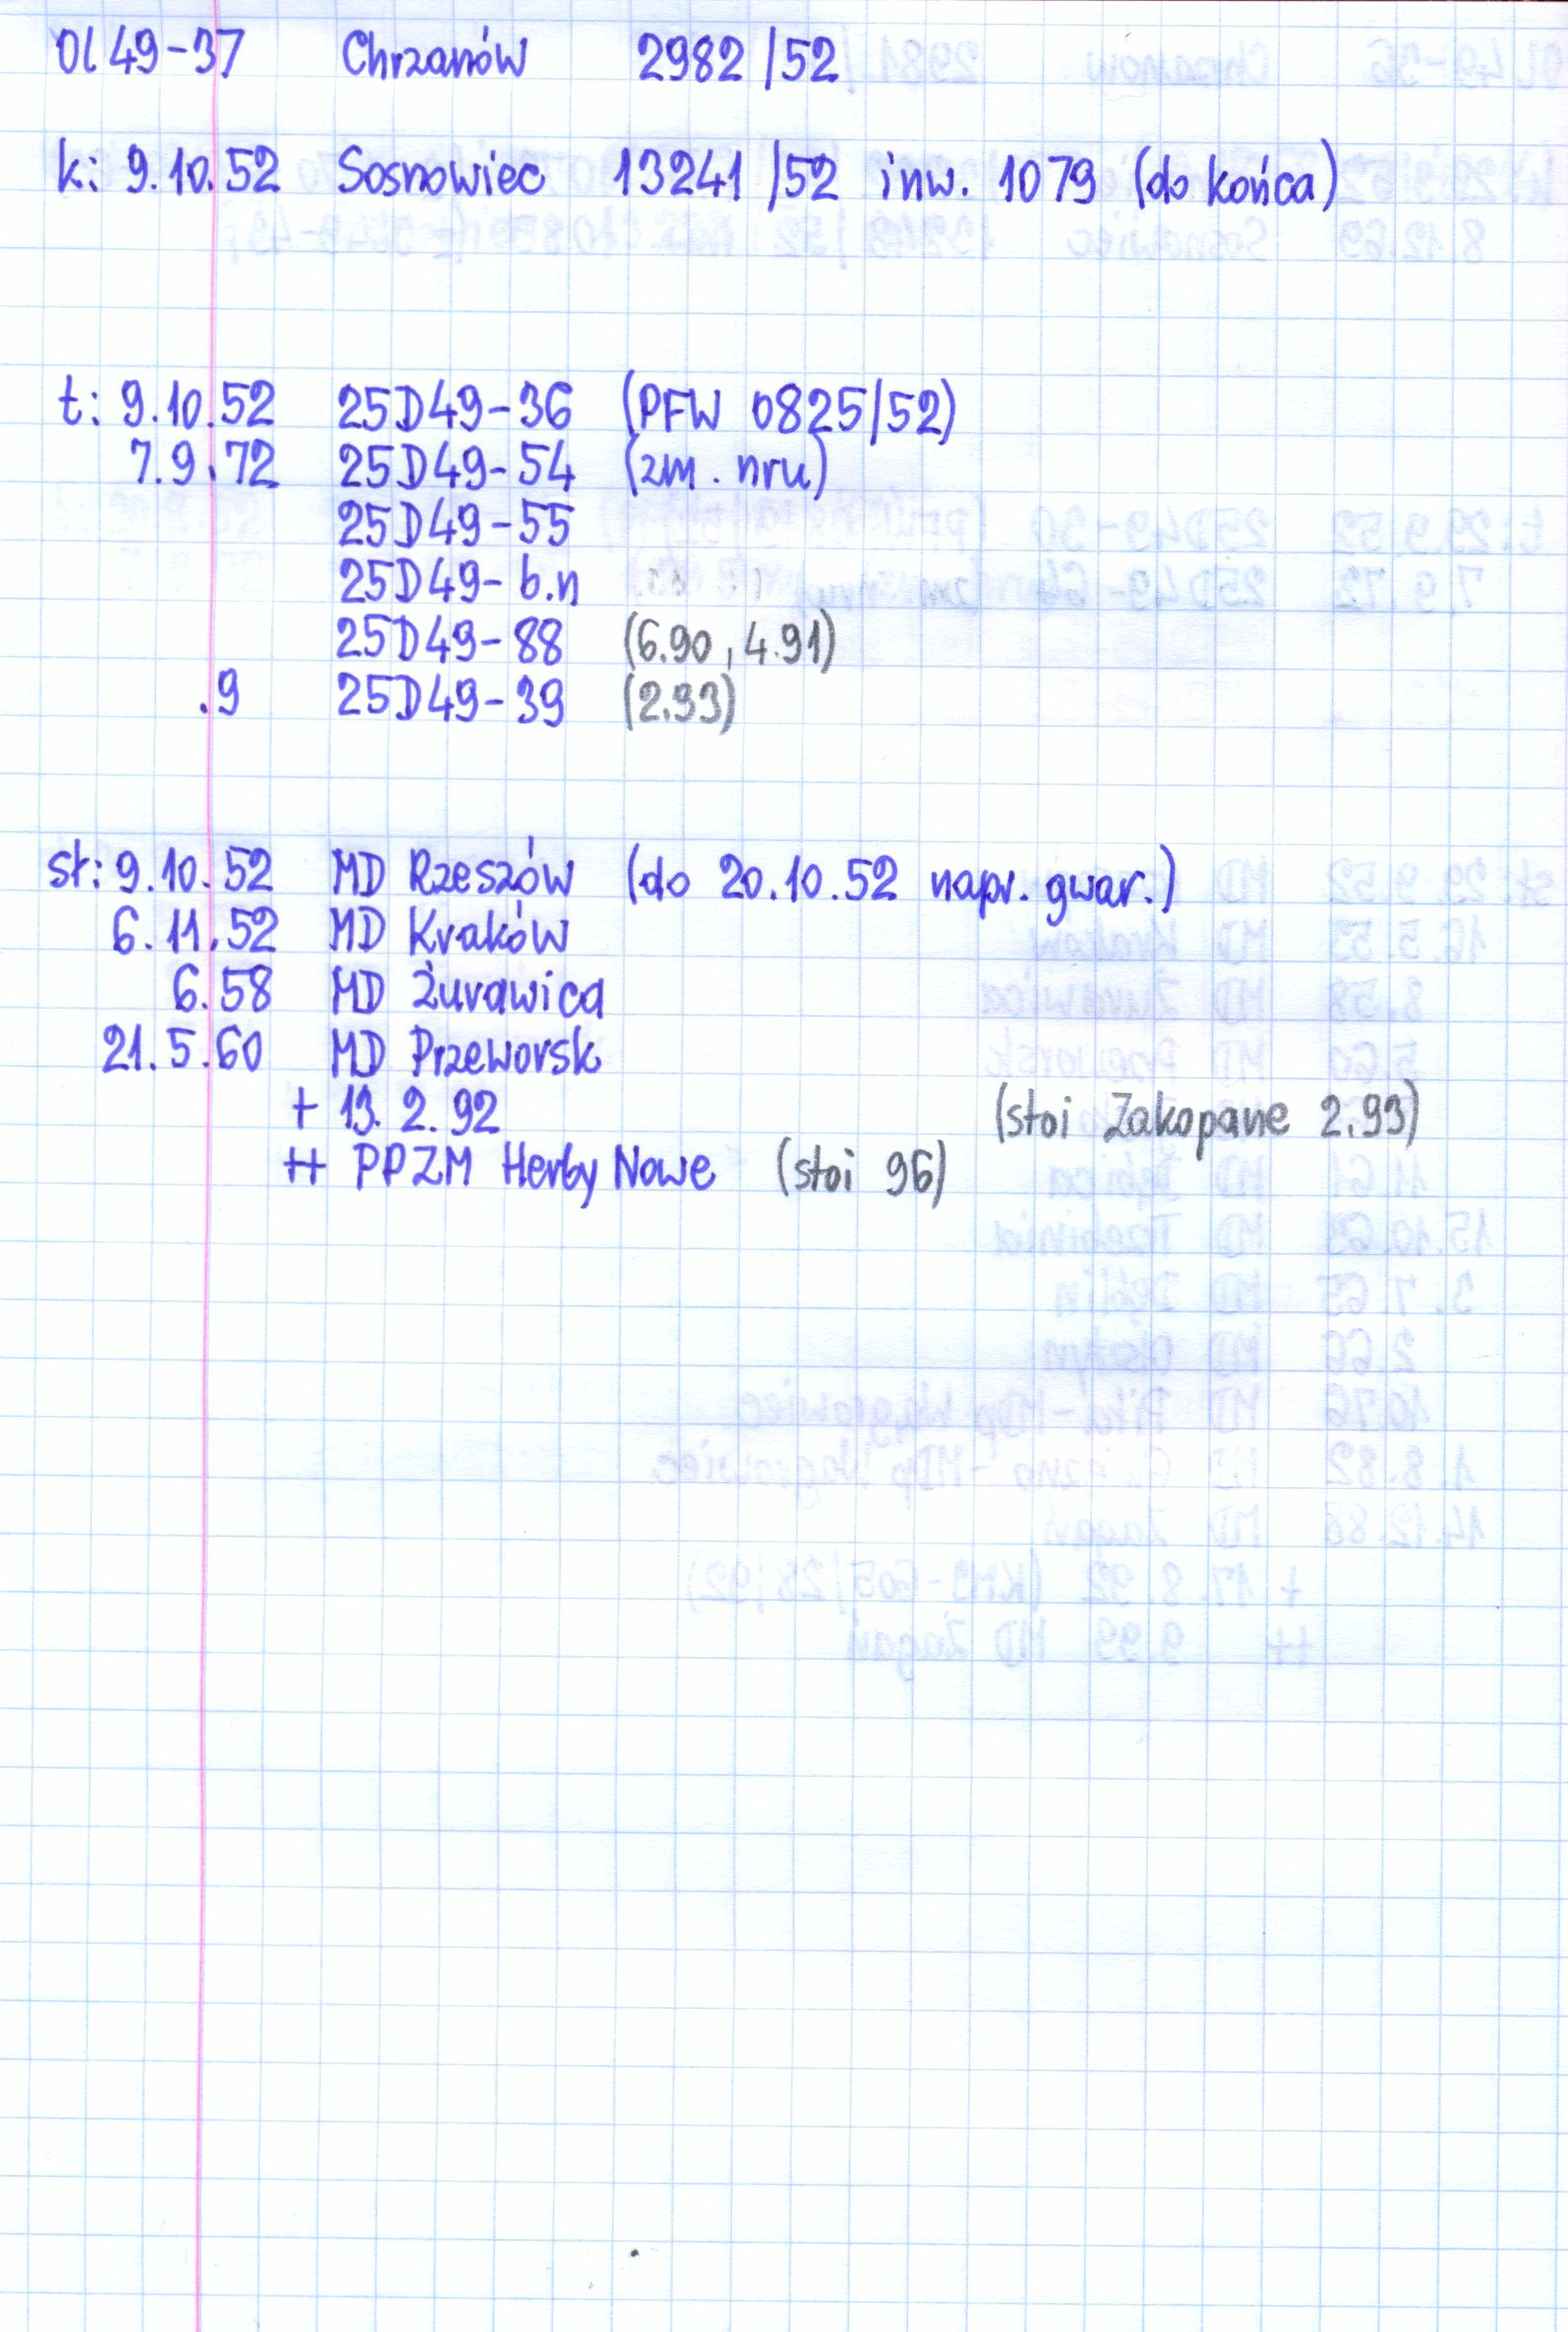 Ol 49-37 Chrzanów 2982/52
k: 9.10.52 Sosnowiec 13241/52 inw. 1079 (do końca)
t: 9.10.52 25D49-36 (PFW 0825/52)
7.9.72 25D49-54 (zm. nru)
25D49-55
25D49-b.n
25D49-88 (6.90, 4.91)
.9 25D49-39 (2.93)
st: 9.10.52 MD Rzeszów (do 20.10.52 napr. gwar.)
6.11.52 MD Kraków
6.58 MD Żurawica
21.5.60 MD Przeworsk
+ 13.2.92 (stoi Zakopane 2.93)
++ PPZM Herby Nowe (stoi 96)